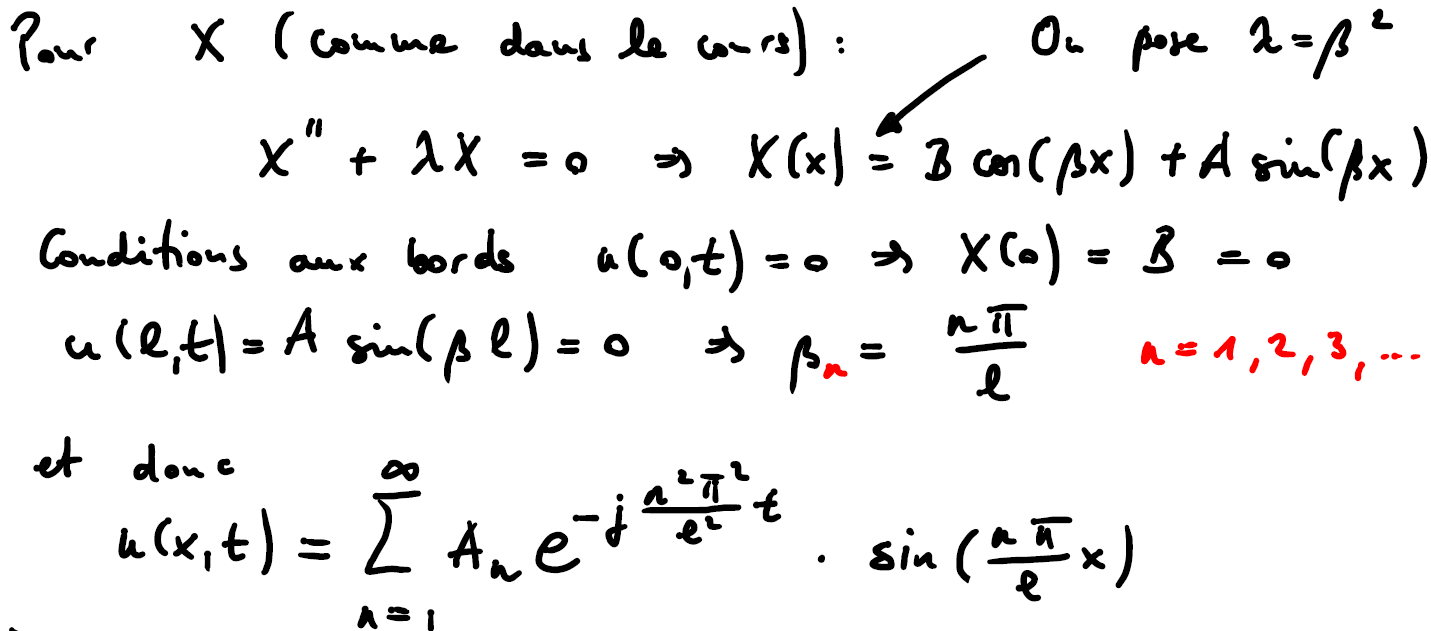 Pour X (comme dans le cours) : On pose λ = β²
X" + λX = 0 ⇒ X(x) = B cos(βx) + A sin(βx)
Conditions aux bords u(0,t) = 0 ⇒ X(0) = B = 0
u(l,t) = A sin(β l) = 0 ⇒ βₙ = nπ/l n = 1, 2, 3, ...
et donc
u(x,t) = ∑_{n=1}^{∞} Aₙ e^{-j (n²π²/l²) t} · sin(nπ/l x)